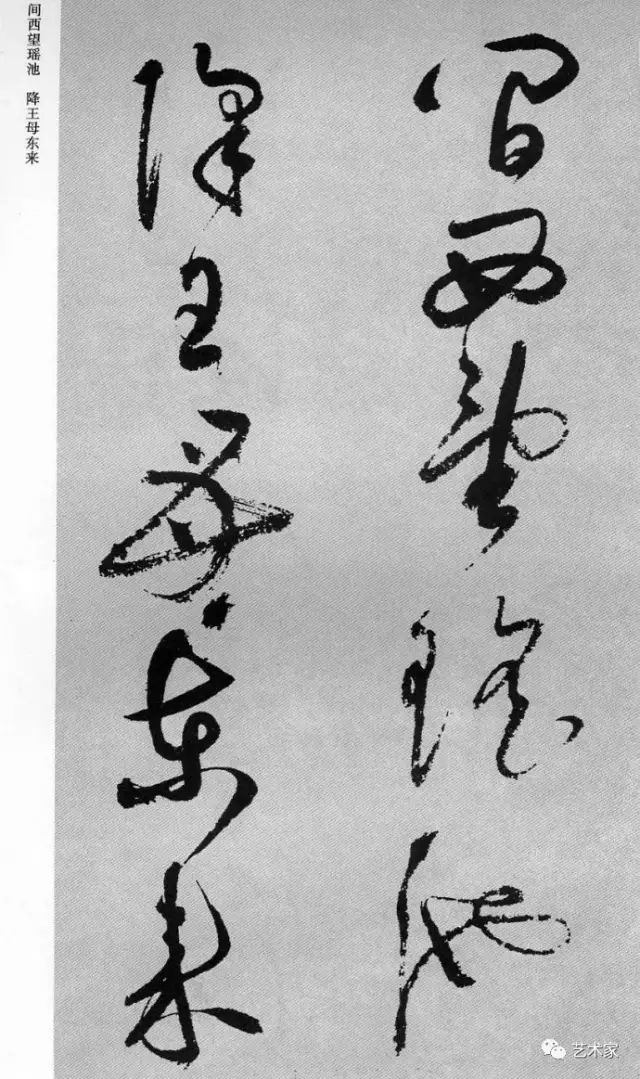 间西望瑶池
降王母东来
间西望瑶池 降王母东来
艺术家